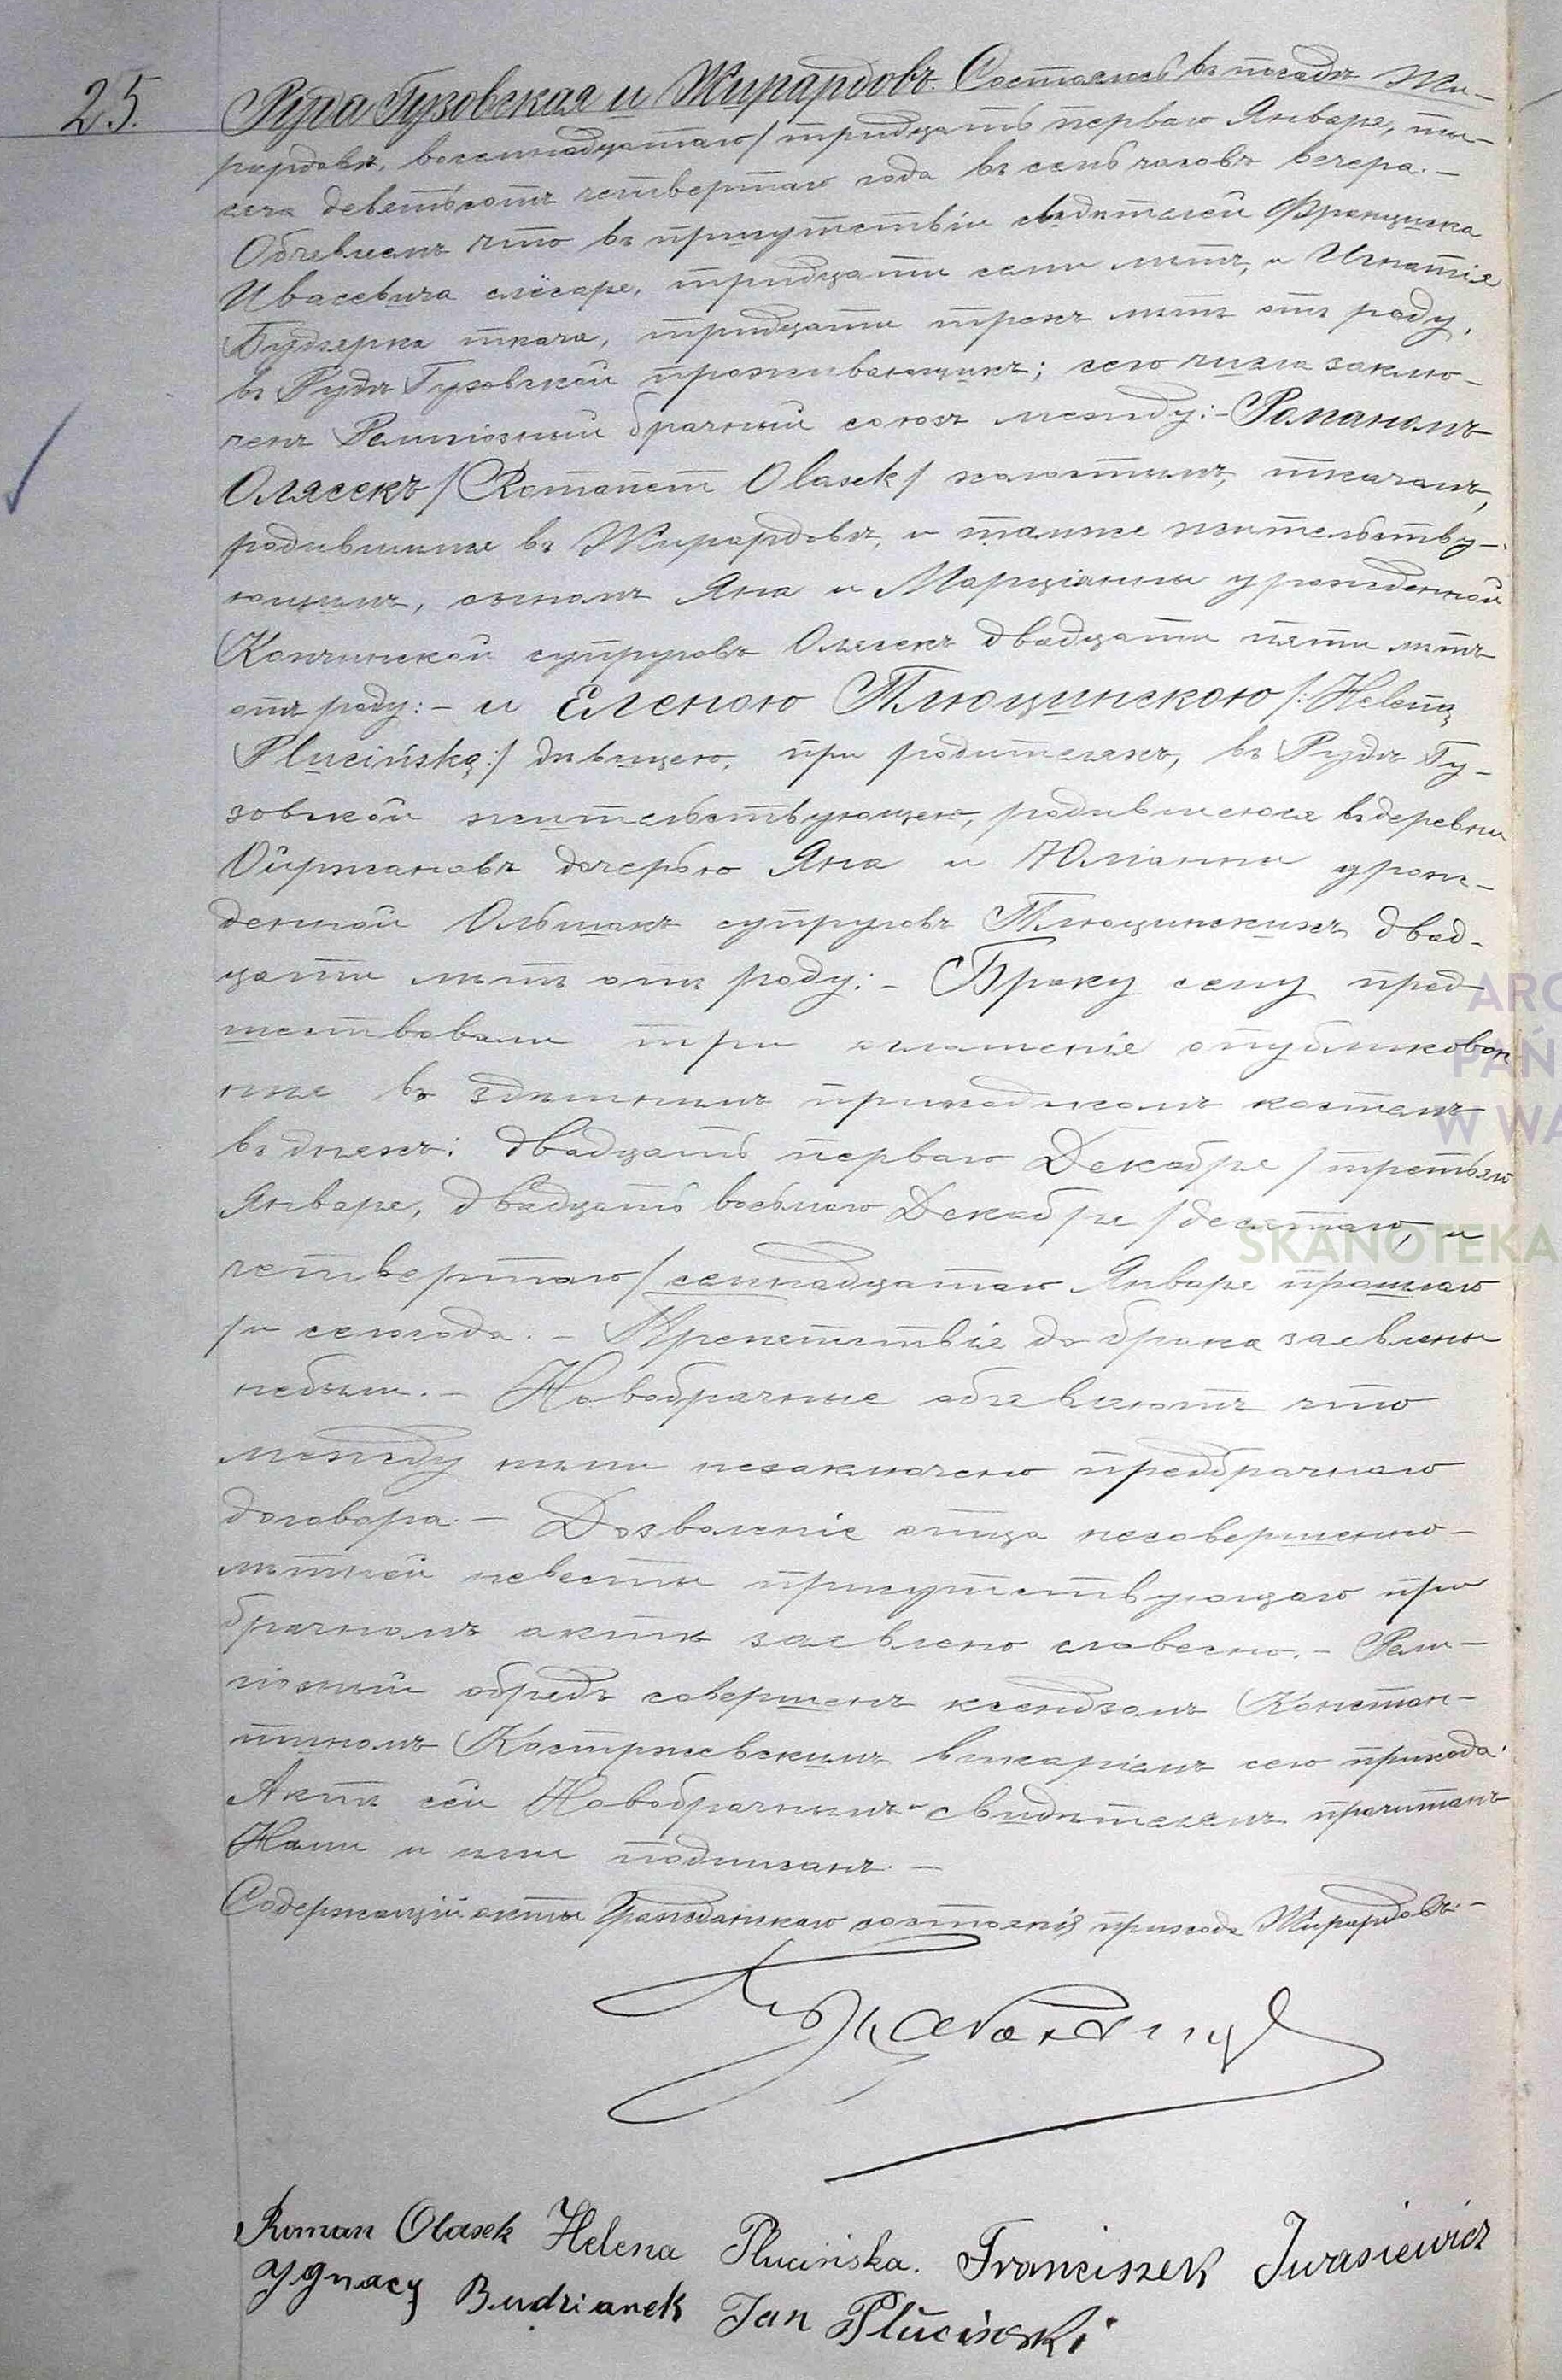 25.
Руда Гузовская и Жирардовъ. Состоялось въ посадѣ Жи-
рардовѣ, восемнадцатаго/тридцать перваго Января, ты-
сяча девятьсотъ четвертаго года въ семь часовъ вечера.-
Объявляемъ что въ присутствіи свѣдителей Францишка
слёсаря, тридцати семи лѣтъ, и Игнатія
ткача, тридцати трехъ лѣтъ отъ роду,
въ Рудѣ Гузовской проживающихъ; сего числа заклю-
ченъ Религіозный брачный союзъ между:- Романомъ
Олясекъ /Romanem Olasek/ холостымъ, ткачомъ,
родившимся въ Жирардовѣ, и тамже жительству-
ющимъ, сыномъ Яна и Марціанны урожденной
супруговъ Олясекъ двадцати пяти лѣтъ
отъ роду:- и Еленою Плюцинскою /:Heleną
Plucińską:/ дѣвицею, при родителяхъ, въ Рудѣ Гу-
зовской жительствующею, родившеюся въ деревни
Ойржановъ дочерью Яна и Юліанны урож-
денной Ольшакъ супруговъ Плюцинскихъ двад-
цати лѣтъ отъ роду:- Браку сему пред-
шествовали три оглашенія опубликован
ныя въ здѣшнимъ приходскомъ костелѣ
въ дняхъ: двадцать перваго Декабря /третьяго
Января, двадцать восьмаго Декабря /десятаго, и
четвертаго/семнадцатаго Января прошлаго
/и сегогода.- Препятствія до брака заявлены
небыли.- Новобрачные объявляютъ что
между ними незаключено предбрачнаго
договора.- Дозволеніе отца несовершенно-
лѣтней невесты присутствующаго при
брачномъ актѣ заявлено словесно.- Рели-
гіозный обрядъ совершенъ ксендзомъ Констан-
тиномъ Костржевскимъ викаріемъ сего прихода.
Актъ сей Новобрачнымъ и свидѣтелямъ прочитанъ
Нами и ими подписанъ.-
Содержащій акты Гражданскаго состоянія прихода Жирардовъ.-
Roman Olasek Helena Plucińska. Franciszek Iwasiewicz
Ygnacy Budzianek Jan Pluciński
ARC
PAŃ
W WA
SKANOTEKA